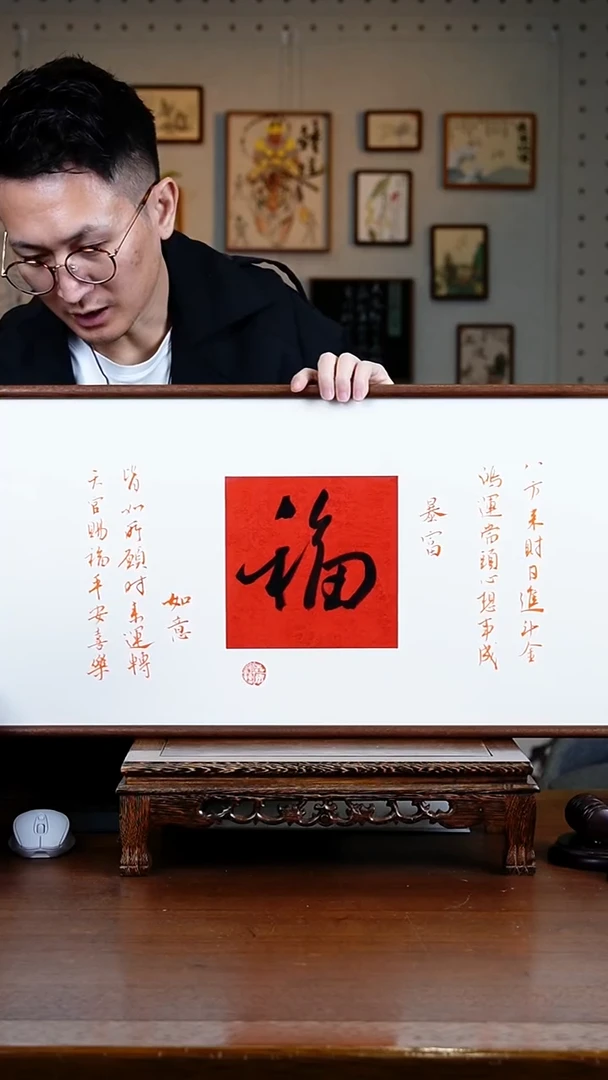 八方来財日進斗金
鴻運當頭心想事成
暴富
福
如意
皆如所願时来運轉
天官賜福平安喜樂